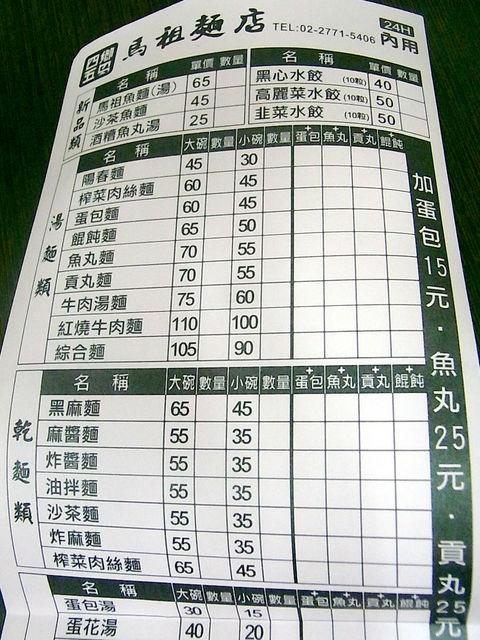 四五 馬祖麵店 TEL:02-2771-5406 24H 內用
新品類
名稱 單價 數量
馬祖魚麵(湯) 65
沙茶魚麵 45
酒糟魚丸湯 25
名稱 單價 數量
黑心水餃(10粒) 40
高麗菜水餃(10粒) 50
韭菜水餃(10粒) 50
湯麵類
名稱 大碗 數量 小碗 數量 +蛋包 +魚丸 +貢丸 +餛飩
陽春麵 45 30
榨菜肉絲麵 60 45
蛋包麵 60 45
餛飩麵 65 50
魚丸麵 70 55
貢丸麵 70 55
牛肉湯麵 75 60
紅燒牛肉麵 110 100
綜合麵 105 90
乾麵類
名稱 大碗 數量 小碗 數量 +蛋包 +魚丸 +貢丸 +餛飩
黑麻麵 65 45
麻醬麵 55 35
炸醬麵 55 35
油拌麵 55 35
沙茶麵 55 35
炸麻麵 55 35
榨菜肉絲麵 65 45
名稱 大碗 數量 小碗 數量 +蛋包 +魚丸 +貢丸 +餛飩
蛋包湯 30 15
蛋花湯 40 20
加蛋包15元·魚丸25元·貢丸25元